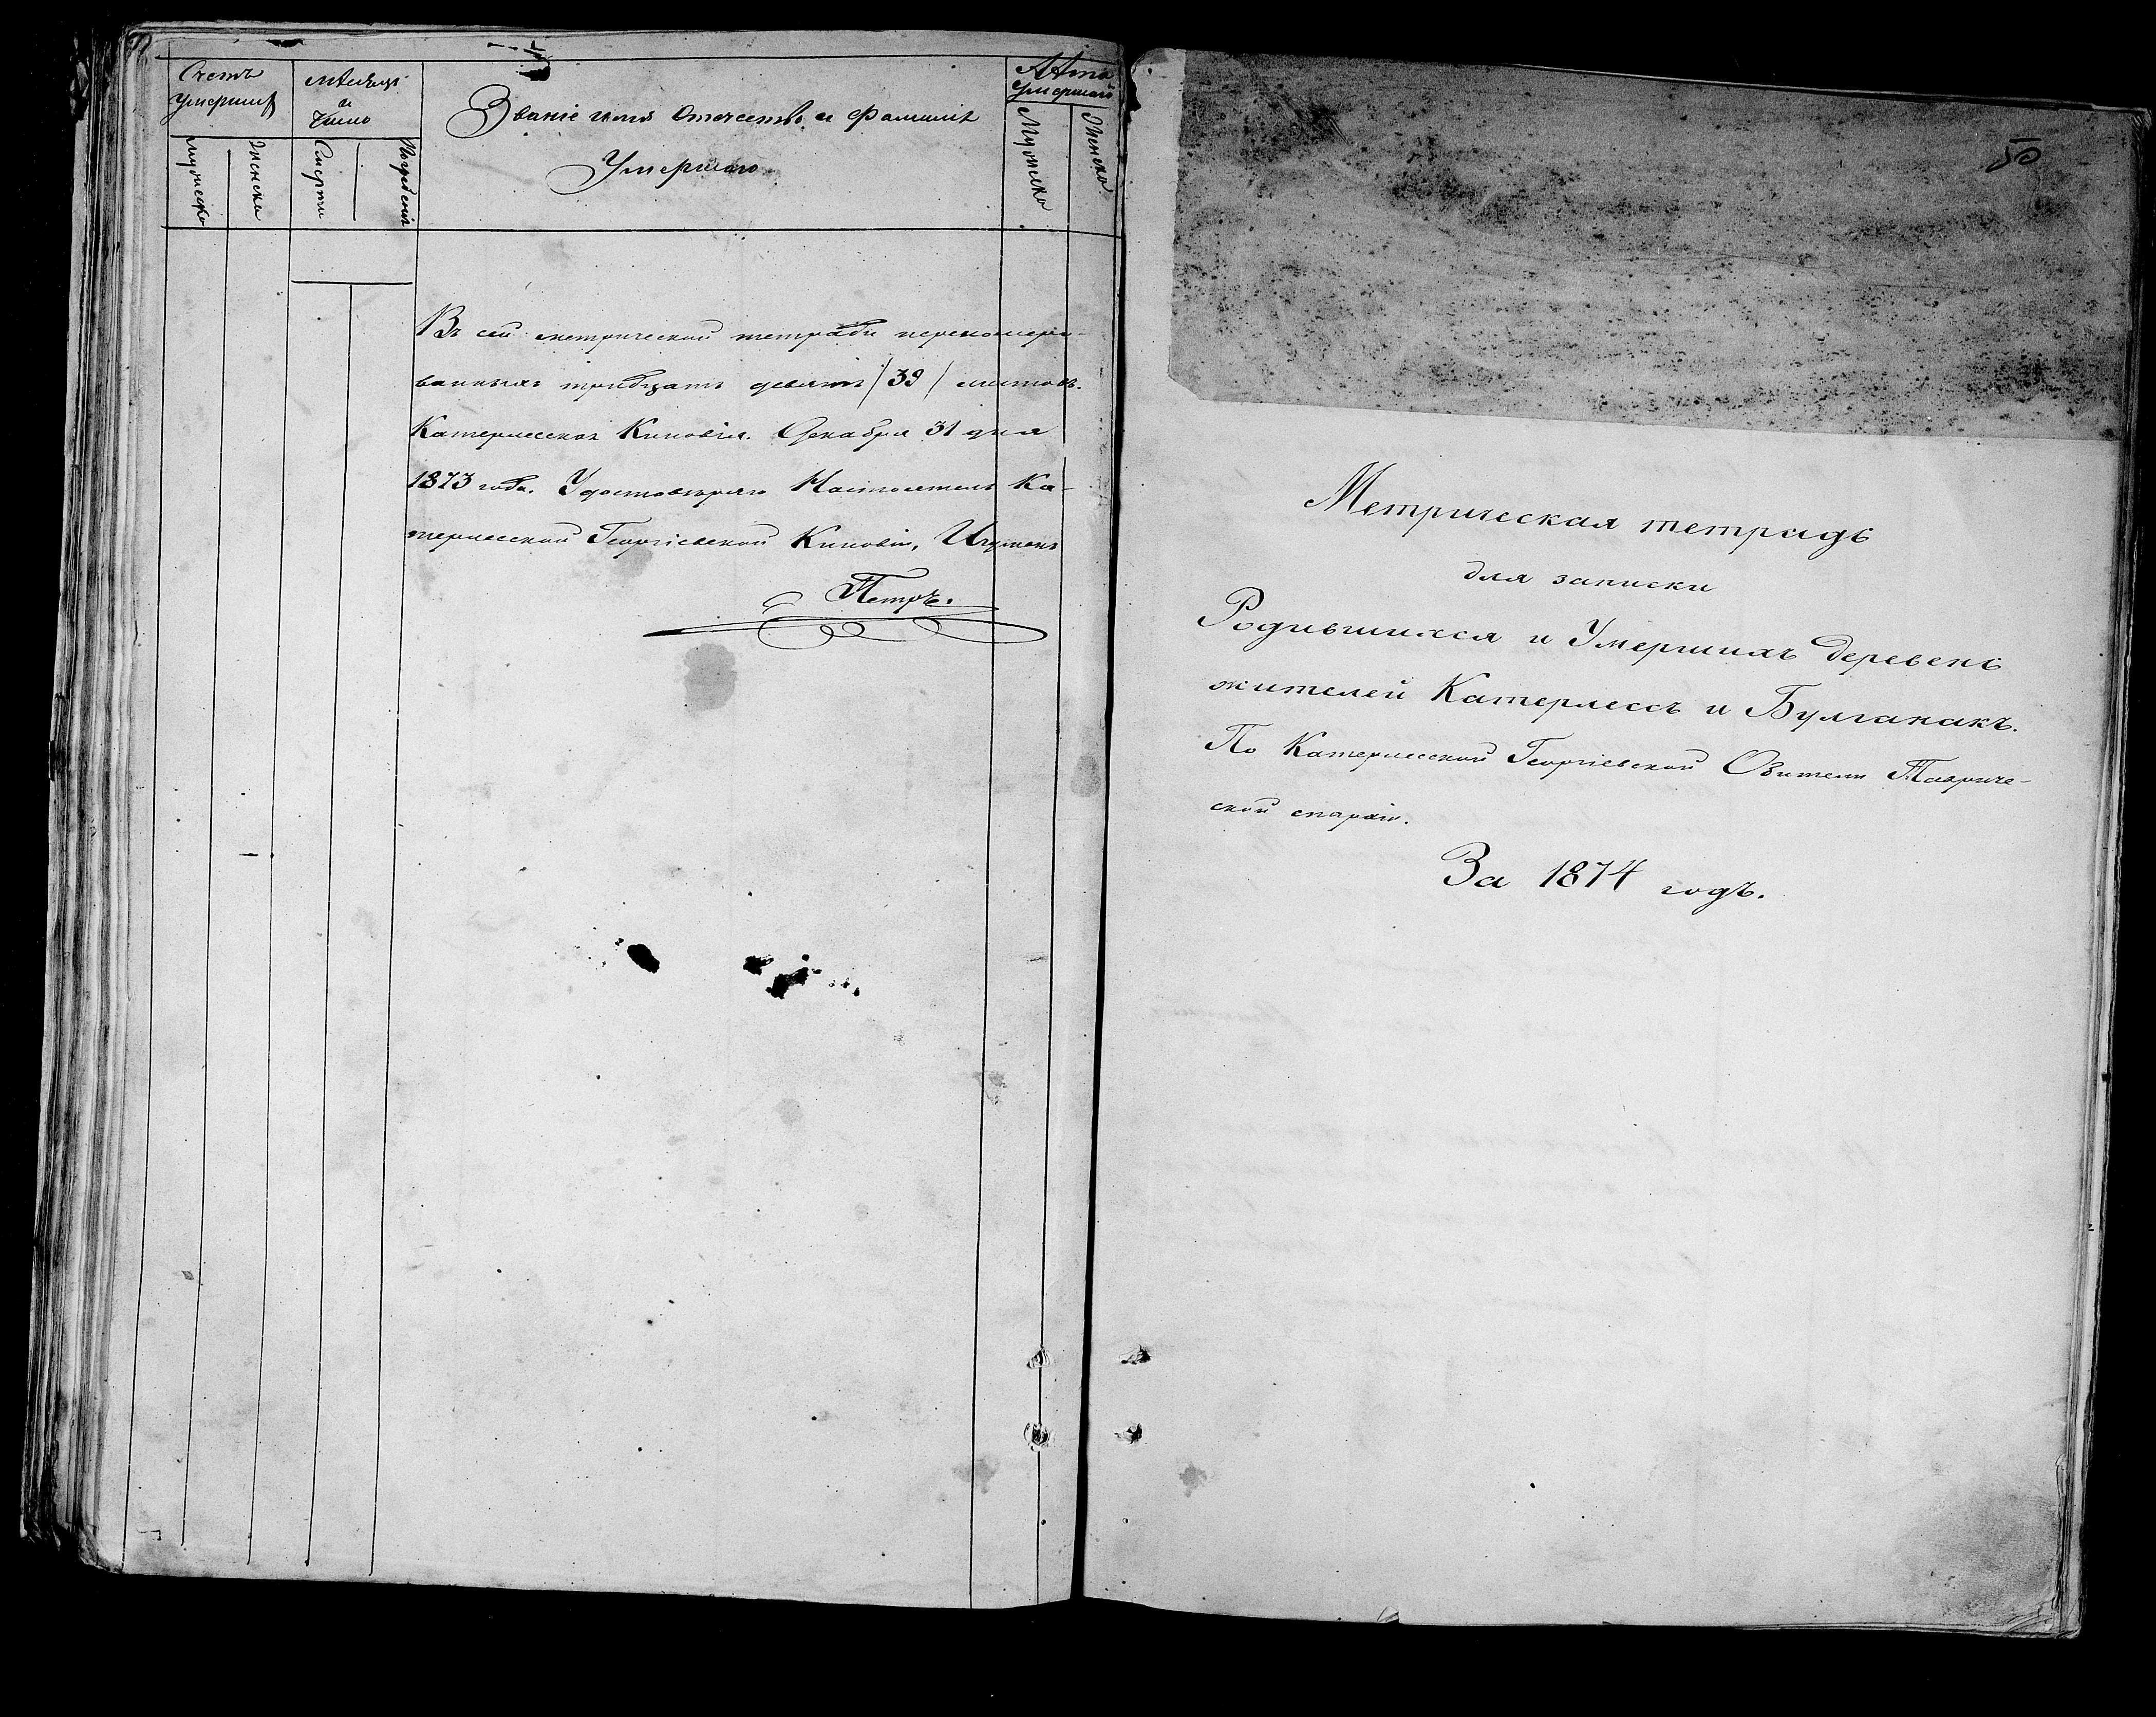 Счетъ
умершихъ
мѣсяцъ
и
число
Званіе имя отечество и фамилія
Умершаго
Лѣта
умершаго
мужеска
женска
Смерти
Погребенія
Мужеска
Женска
Въ сей метрической тетради переномеро-
ванныхъ тридцать девять /39/ листовъ.
Катерлесская Киновія. Декабря 31 дня
1873 года. Удостовѣряю Настоятель Ка-
терлесской Георгіевской Киновіи, Игуменъ
Петръ.
50
Метрическая тетрадь
для записки
Родившихся и Умершихъ деревень
жителей Катерлессъ и Булганакъ.
По Катерлесской Георгіевской Обители Тавриче-
ской епархіи.
За 1874 годъ.